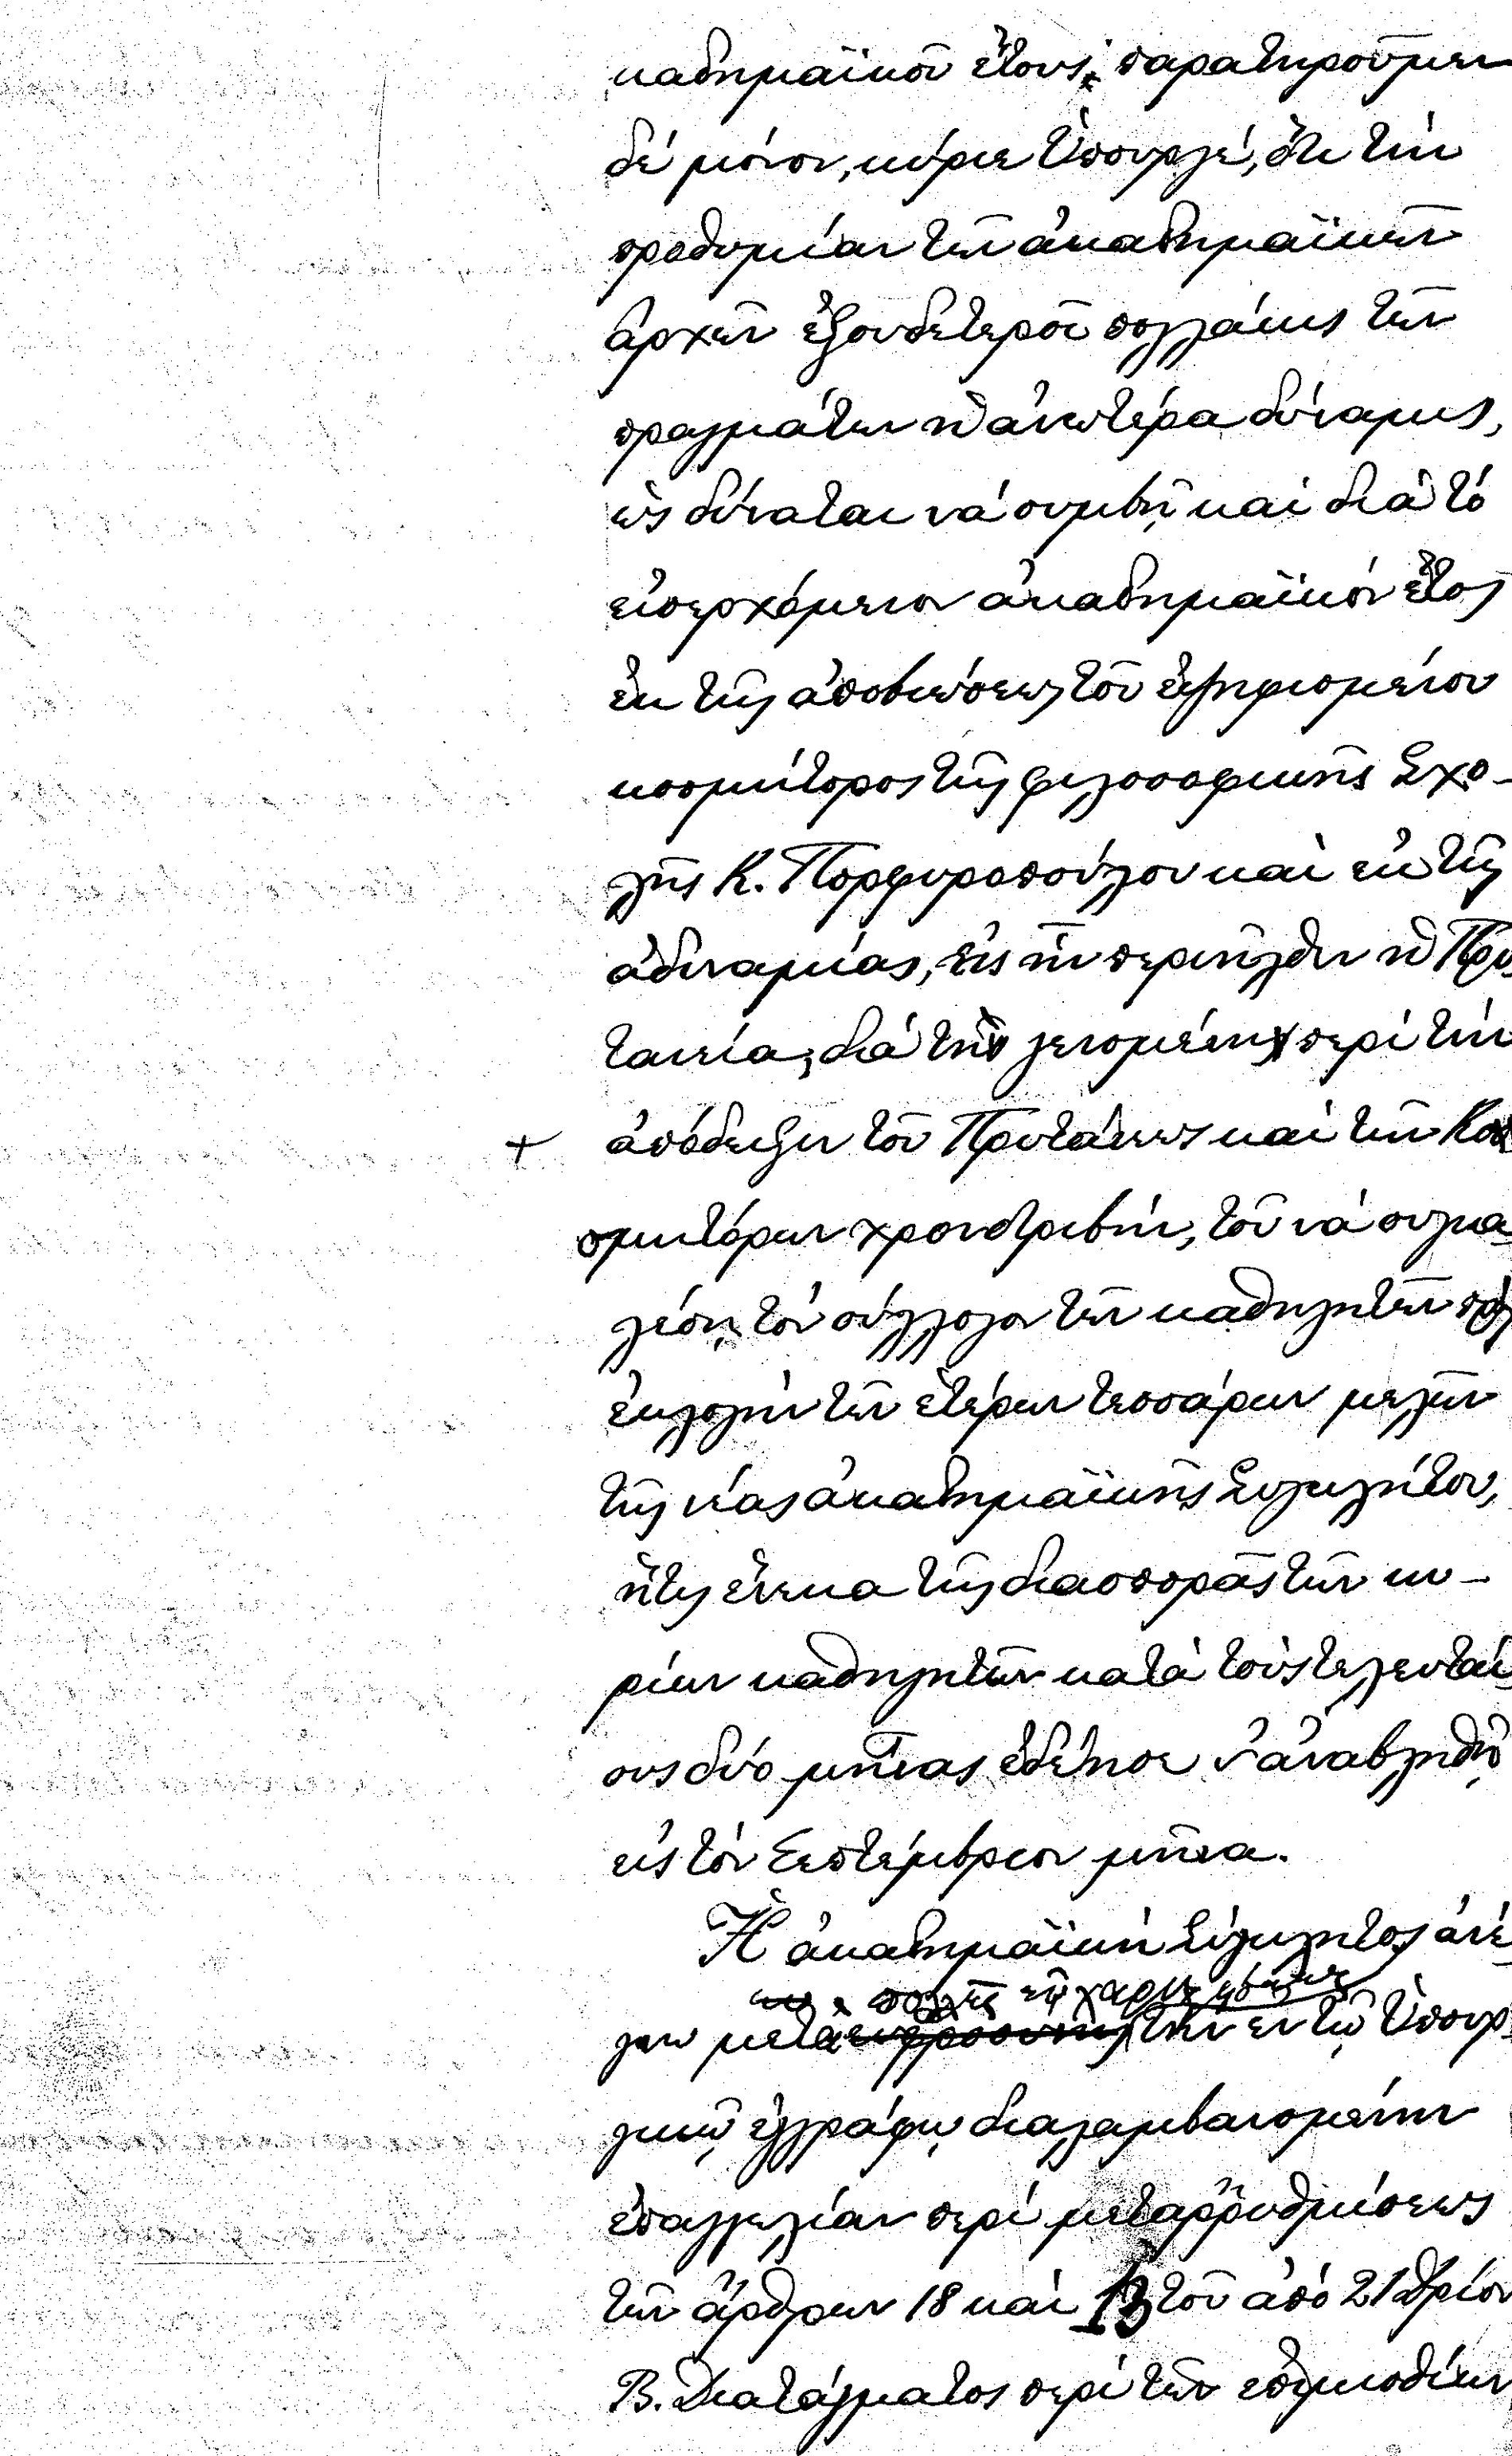 καδημαϊκοῦ ἔτους, παρατηροῦμεν
δέ μόνον, κύριε Ὑπουργέ, ὅτι τήν
προθυμίαν τῶν ἀκαδημαϊκῶν
ἀρχῶν ἐξουδετεροῖ πολλάκις τῶν
πραγμάτων ἡ ἀνωτέρα δύναμις,
ὡς δύναται νά συμβῇ καί διά τό
εἰσερχόμενον ἀκαδημαϊκόν ἔτος
ἐκ τῆς ἀποβιώσεως τοῦ ἐψηφισμένου
κοσμήτορος τῆς φιλοσοφικῆς Σχο-
λῆς Κ. Πορφυροπούλου καί ἐκ τῆς
ἀδυναμίας, εἰς ἥν περιῆλθεν ἡ Πρυ
τανεία, διά τήν γενομένην περί τήν
+ ἀπόδειξιν τοῦ Πρυτάνεως καί τῶν Κο
σμητόρων χρονοτριβήν, τοῦ νά συγκα
λέσῃ τόν σύλλογον τῶν καθηγητῶν πρός
ἐκλογήν τῶν ἑτέρων τεσσάρων μελῶν
τῆς νέας ἀκαδημαϊκῆς Συγκλήτου,
ἥτις ἕνεκα τῆς διασπορᾶς τῶν κυ-
ρίων καθηγητῶν κατά τούς τελευταί
ους δύο μῆνας ἐδέησε ν' ἀναβληθῇ
εἰς τόν Σεπτέμβριον μῆνα.
Ἡ ἀκαδημαϊκή Σύγκλητος ἀνέ
πολλῆς εὐχαριστήσεως
γνω μετά εὐφροσύνης τήν ἐν τῷ Ὑπουρ
γικῷ ἐγγράφῳ διαλαμβανομένην
ἐπαγγελίαν περί μεταρρυθμίσεως
τῶν ἄρθρων 18 καί 13 τοῦ ἀπό 21 8βρίου
Β. Διατάγματος περί τῶν